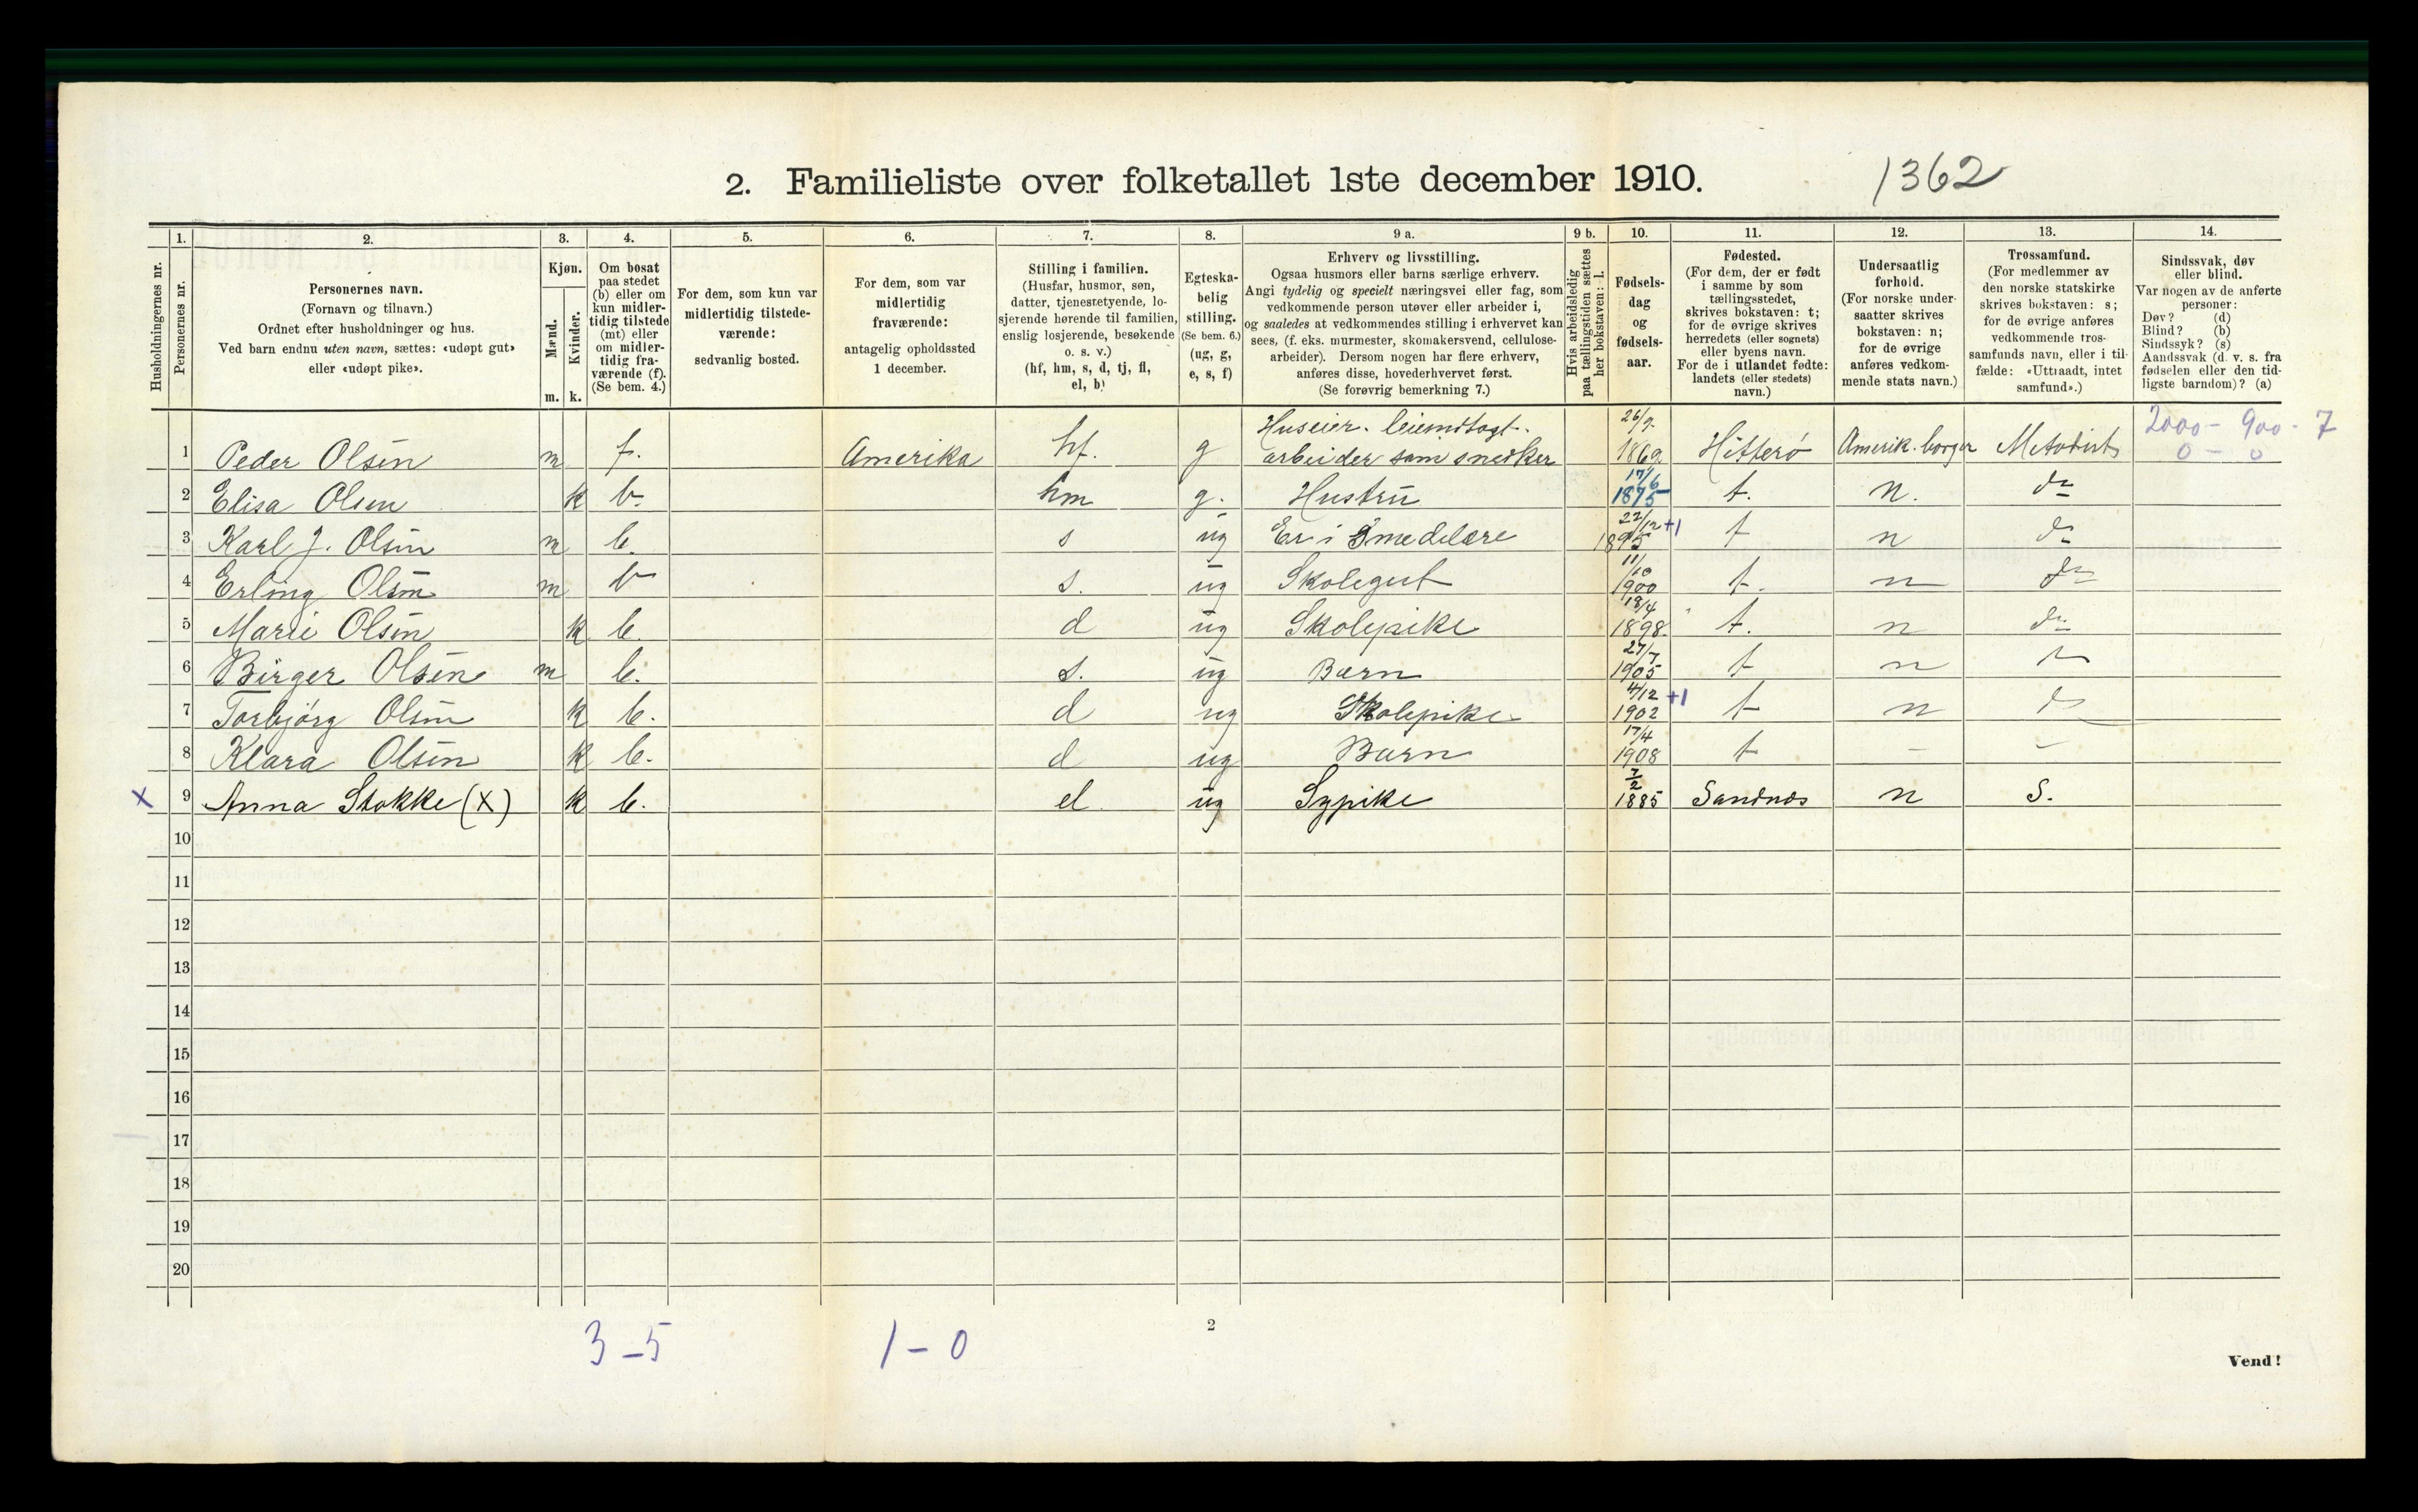 2. Familieliste over folketallet 1ste december 1910.
1362
Husholdningernes nr.
1.
Personernes nr.
2.
Personernes navn.
(Fornavn og tilnavn.)
Ordnet efter husholdninger og hus.
Ved barn endnu uten navn, sættes: «udøpt gut»
eller «udøpt pike».
3.
Kjøn.
Mænd.
Kvinder.
m. k.
4.
Om bosat
paa stedet
(b) eller om
kun midler-
tidig tilstede
(mt) eller
om midler-
tidig fra-
værende (f).
(Se bem. 4.)
5.
For dem, som kun var
midlertidig tilstede-
værende:
sedvanlig bosted.
6.
For dem, som var
midlertidig
fraværende:
antagelig opholdssted
1 december.
7.
Stilling i familien.
(Husfar, husmor, søn,
datter, tjenestetyende, lo-
sjerende hørende til familien,
enslig losjerende, besøkende
o. s. v.)
(hf, hm, s, d, tj, fl,
el, b)
8.
Egteska-
belig
stilling.
(Se bem. 6.)
(ug, g,
e, s, f)
9 a.
Erhverv og livsstilling.
Ogsaa husmors eller barns særlige erhverv.
Angi tydelig og specielt næringsvei eller fag, som
vedkommende person utøver eller arbeider i,
og saaledes at vedkommendes stilling i erhvervet kan
sees, (f. eks. murmester, skomakersvend, cellulose-
arbeider). Dersom nogen har flere erhverv,
anføres disse, hovederhvervet først.
(Se forøvrig bemerkning 7.)
9 b.
Hvis arbeidsledig
paa tællingstiden sættes
her bokstaven: l.
10.
Fødsels-
dag
og
fødsels-
aar.
11.
Fødested.
(For dem, der er født
i samme by som
tællingsstedet,
skrives bokstaven: t;
for de øvrige skrives
herredets (eller sognets)
eller byens navn.
For de i utlandet fødte:
landets (eller stedets)
navn.)
12.
Undersaatlig
forhold.
(For norske under-
saatter skrives
bokstaven: n;
for de øvrige
anføres vedkom-
mende stats navn.)
13.
Trossamfund.
(For medlemmer av
den norske statskirke
skrives bokstaven: s;
for de øvrige anføres
vedkommende tros-
samfunds navn, eller i til-
fælde: «Uttraadt, intet
samfund».)
14.
Sindssvak, døv
eller blind.
Var nogen av de anførte
personer:
Døv? (d)
Blind? (b)
Sindssyk? (s)
Aandssvak (d. v. s. fra
fødselen eller den tid-
ligste barndom)? (a)
1 Peder Olsen m f. Amerika hf. g Huseier. leieindtægt. arbeider som snedker 26/9 1869 Hitterø Amerik. borger Metodist 2000 - 900 - 7
0 - 0
2 Elisa Olsen k b. hm g. Hustru 17/6 1875 t. n. do
3 Karl J. Olsen m b. s ug Er i Smedelære 22/12 1895 +1 t n do
4 Erling Olsen m b s. ug Skolegut 11/10 1900 t. n do
5 Marie Olsen k b. d ug Skolepike 18/4 1898. t. n do
6 Birger Olsen m b. s. ug Barn 27/7 1905 t n do
7 Torbjørg Olsen k b. d ug Skolepike 4/12 1902 +1 t n do
8 Klara Olsen k b. d ug Barn 17/4 1908 t - -
x 9 Anna Stokke (x) k b. el. ug Sypike 7/2 1885 Sandnes n s.
10
11
12
13
14
15
16
17
18
19
20
3 - 5
1 - 0
2
Vend!